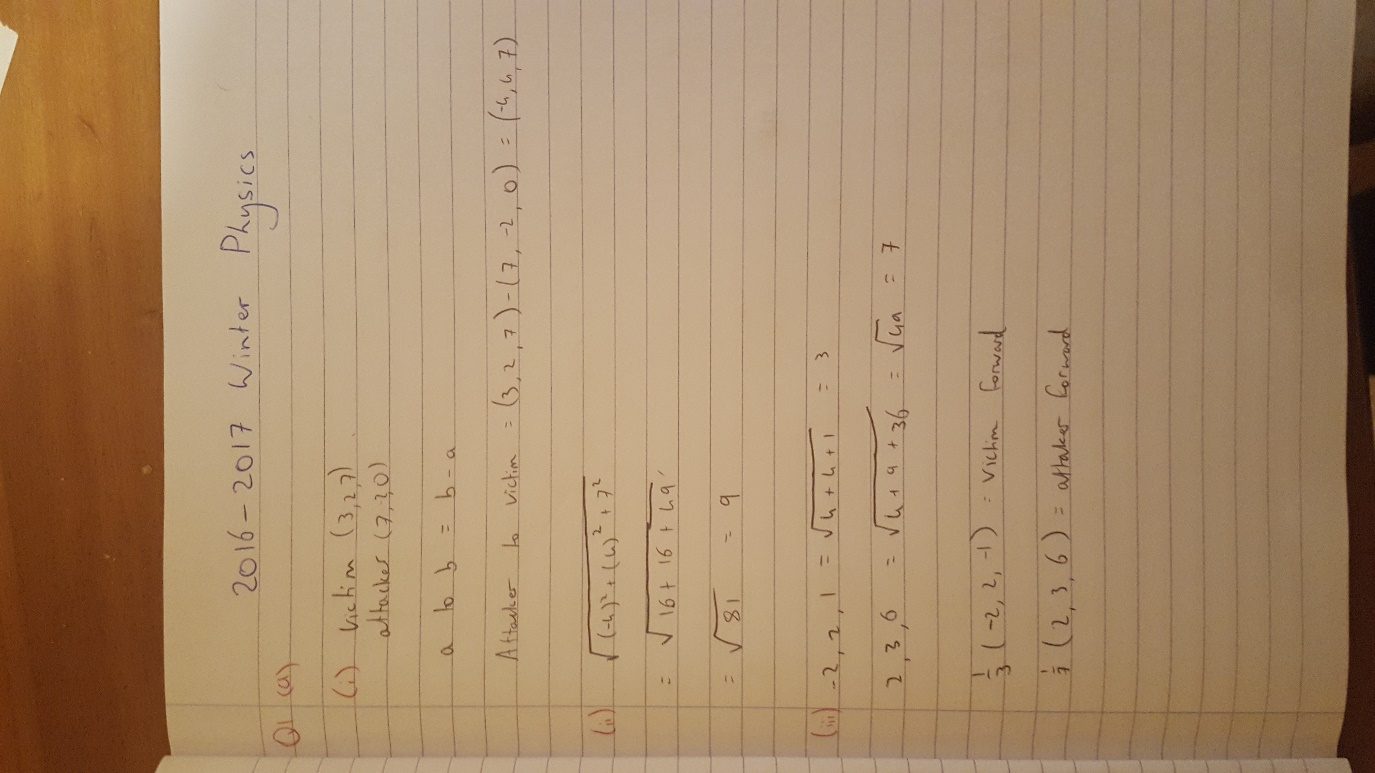 2016-2017 Winter Physics
Q1 (a)
(i) Victim (3,2,7)
attacker (7,-2,0)
a to b = b-a
Attacker to victim = (3,2,7)-(7,-2,0) = (-4,4,7)
(ii) √((-4)²+(4)²+7²)
= √(16+16+49)
= √81 = 9
(iii) -2,2,1 = √(4+4+1) = 3
2,3,6 = √(4+9+36) = √49 = 7
1/3 (-2,2,-1) = victim forward
1/7 (2,3,6) = attaker forward